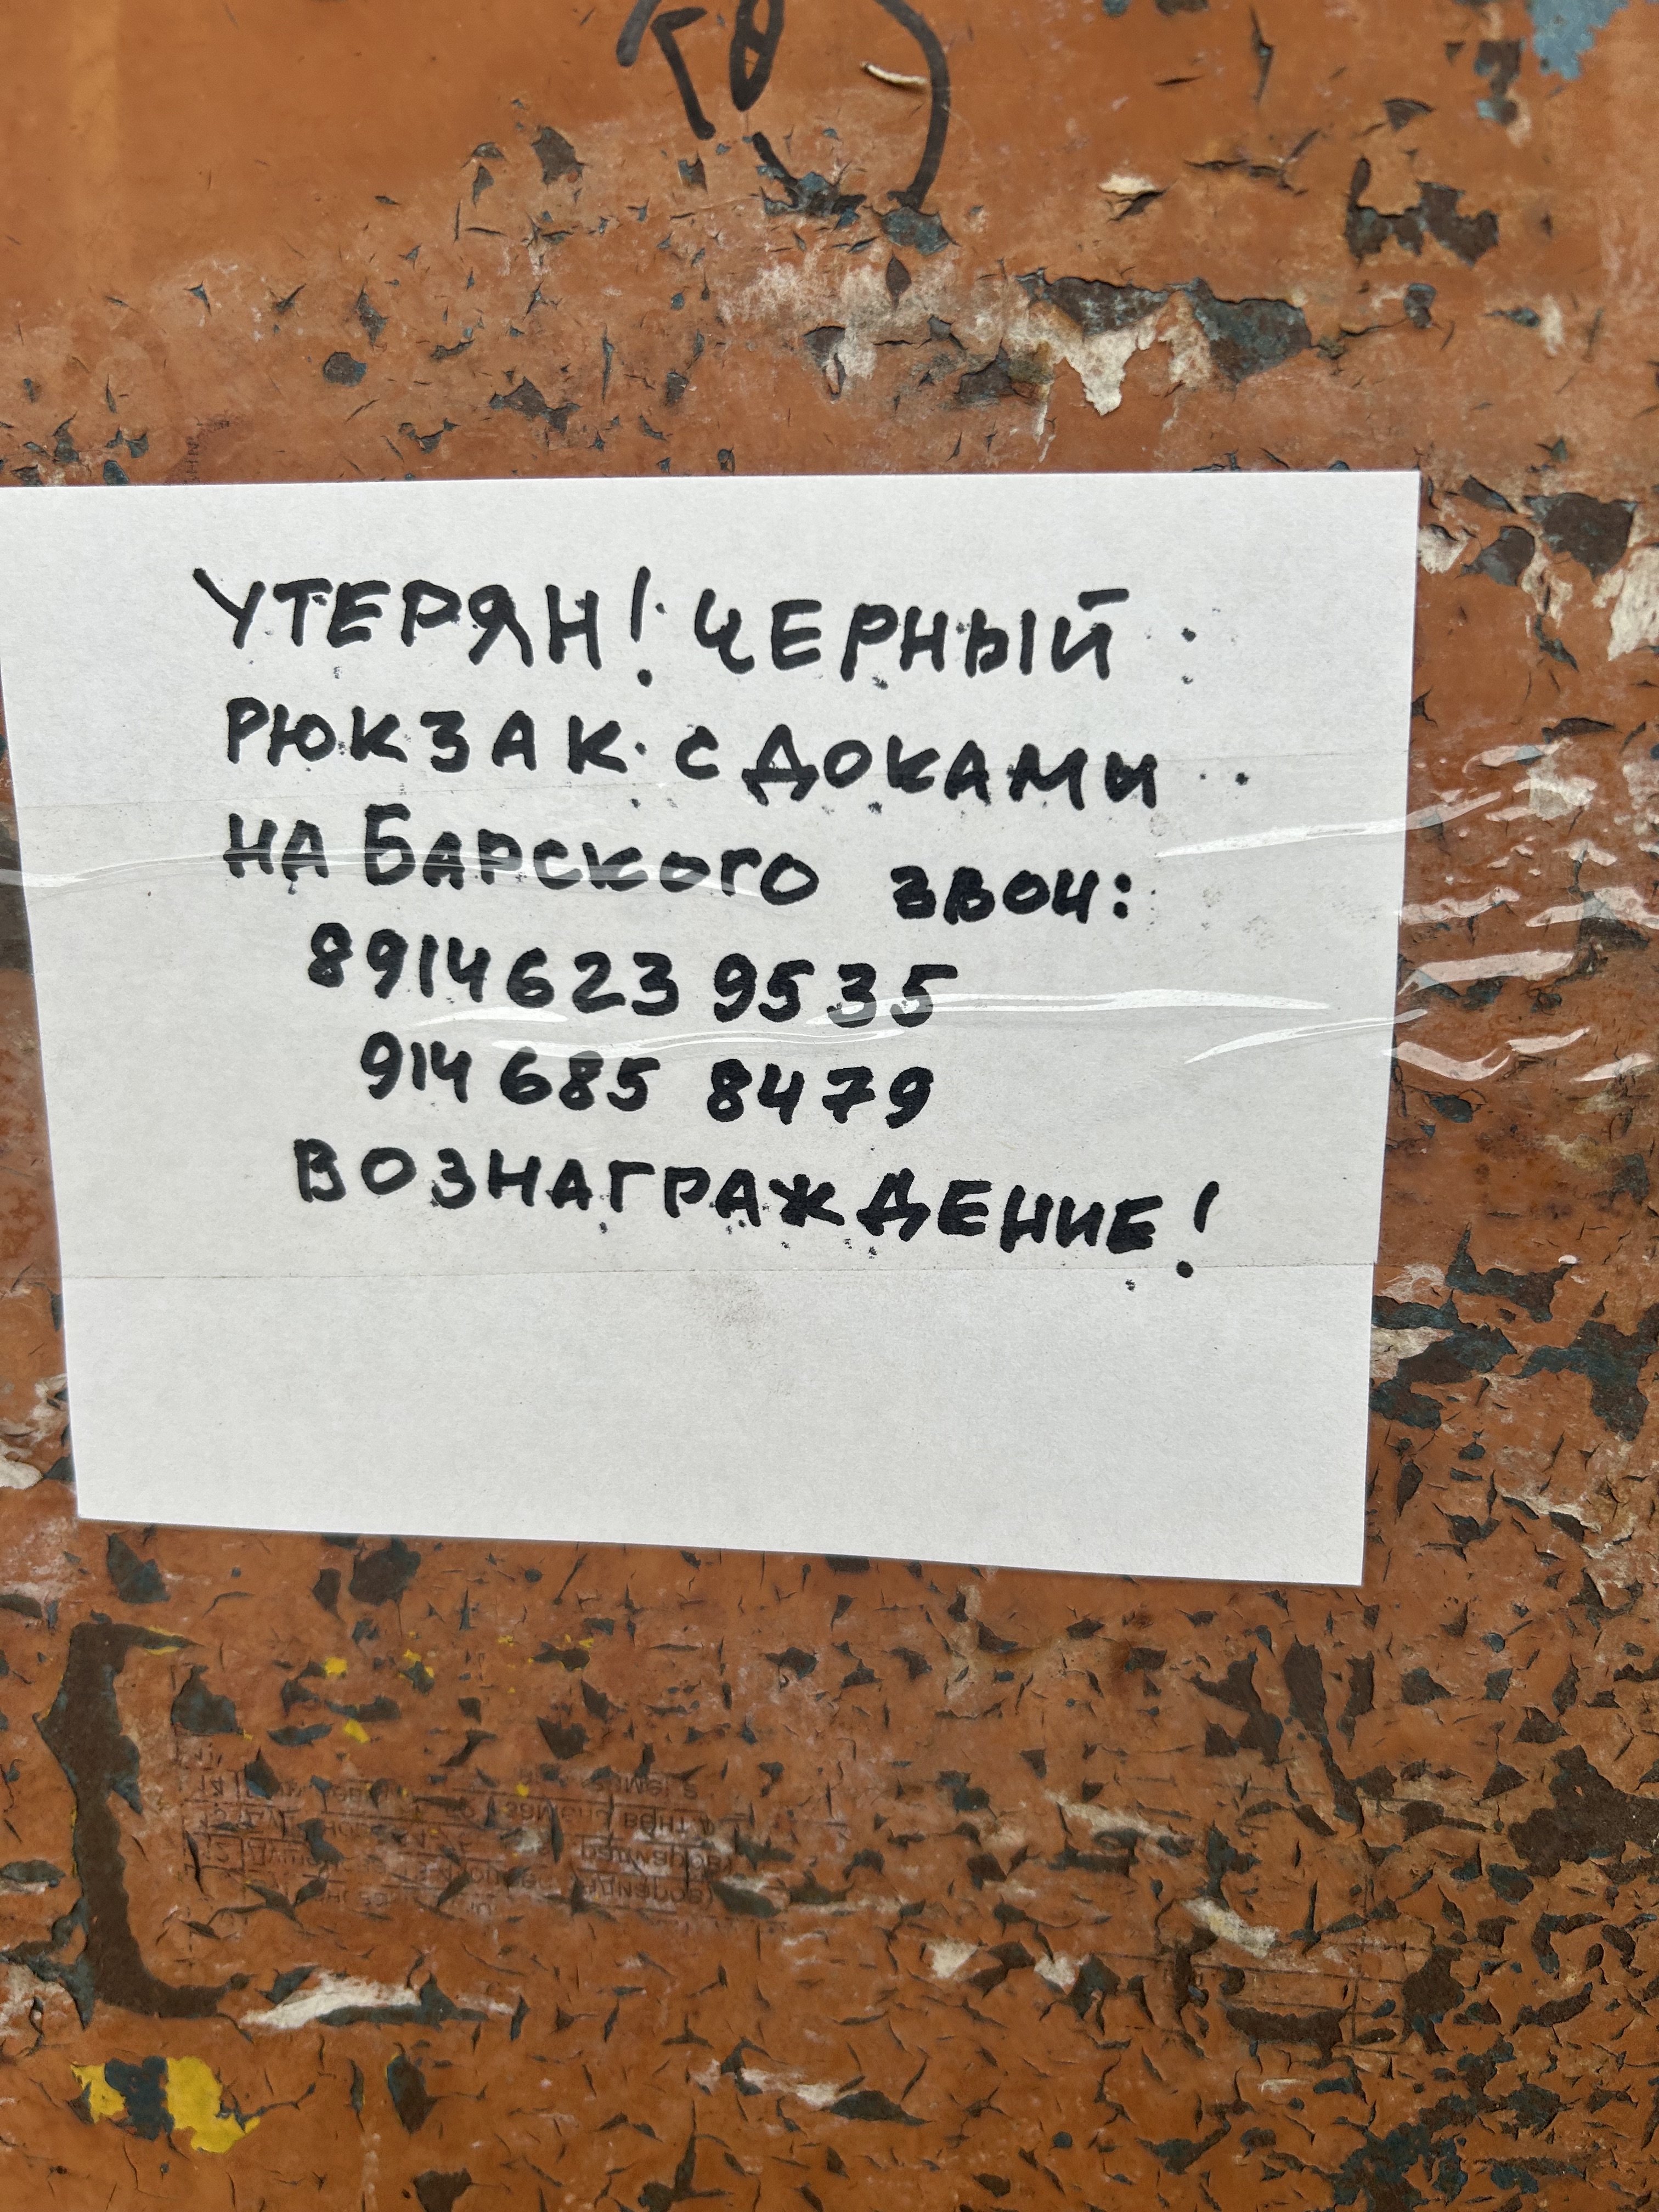 УТЕРЯН! ЧЕРНЫЙ
РЮКЗАК С ДОКАМИ
НА БАРСКОГО ЗВОН:
8914623 9535
914 685 8479
ВОЗНАГРАЖДЕНИЕ!